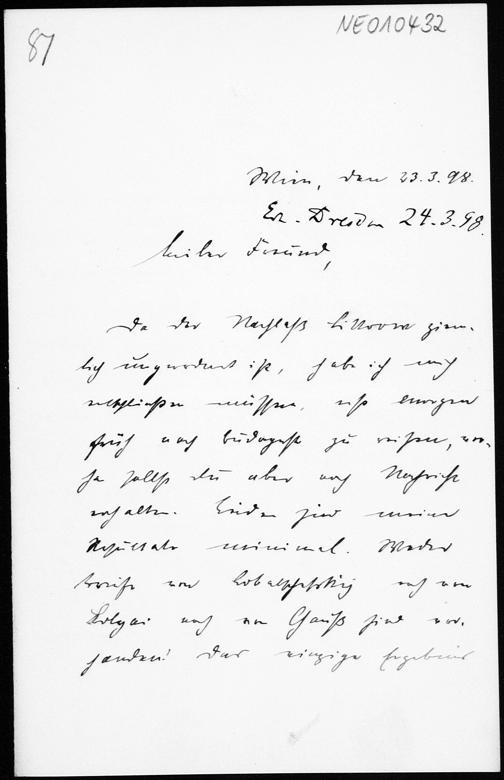 87
NEO10432
Wien, den 23.3.98.
Erh. Dresden 24.3.98.
Lieber Freund,
Da der Nachlaß Littrows ziem-
lich ungeordnet ist, habe ich mich
entschließen müssen, erst morgen
früh nach Budapest zu reisen, vor-
her sollst Du aber noch Nachricht
erhalten. Leider sind meine
Resultate minimal. Weder
Briefe von Lobatschefskij noch von
Bolyai noch von Gauß sind vor-
handen! Das einzige Ergebnis